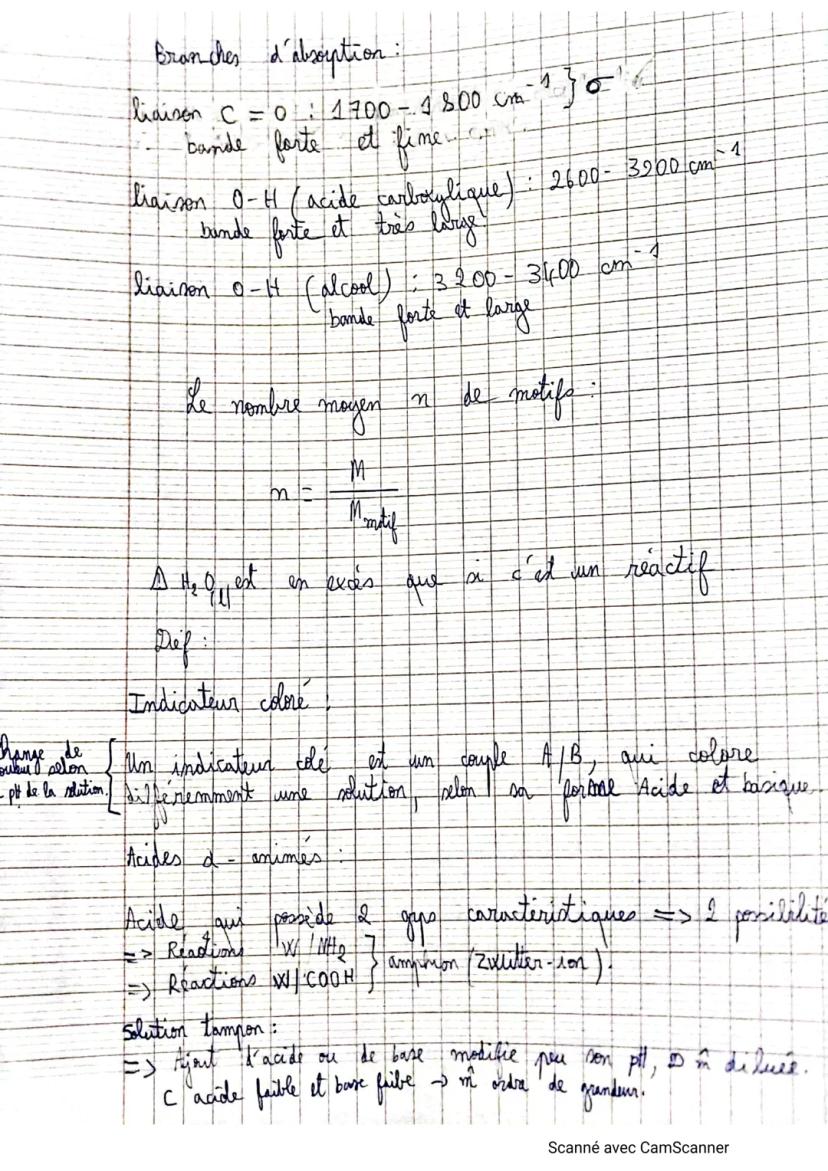 Branches d'absorption :
liaison C = O : 1700 - 1800 cm⁻¹ } σ
bande forte et fine
liaison O-H (acide carboxylique) : 2600 - 3200 cm⁻¹
bande forte et très large
liaison O-H (alcool) : 3200 - 3400 cm⁻¹
bande forte et large
Le nombre moyen n de motifs :
n = M / M motif
⚠ H₂O(l) est en excès que si c'est un réactif
Def :
Indicateur coloré :
change de
couleur selon
pH de la solution.
Un indicateur colé est un couple A/B, qui colore
différemment une solution, selon sa forme Acide et basique.
Acides α - animés :
Acide qui possède 2 grps caractéristiques => 2 possibilité
=> Réactions W/NH₂ } amphion (Zwitter-ion).
=> Réactions W/COOH
Solution tampon :
=> Ajout d'acide ou de base modifie peu son pH, m̂ diluée.
C acide faible et base faibe → m̂ ordre de grandeur.
Scanné avec CamScanner